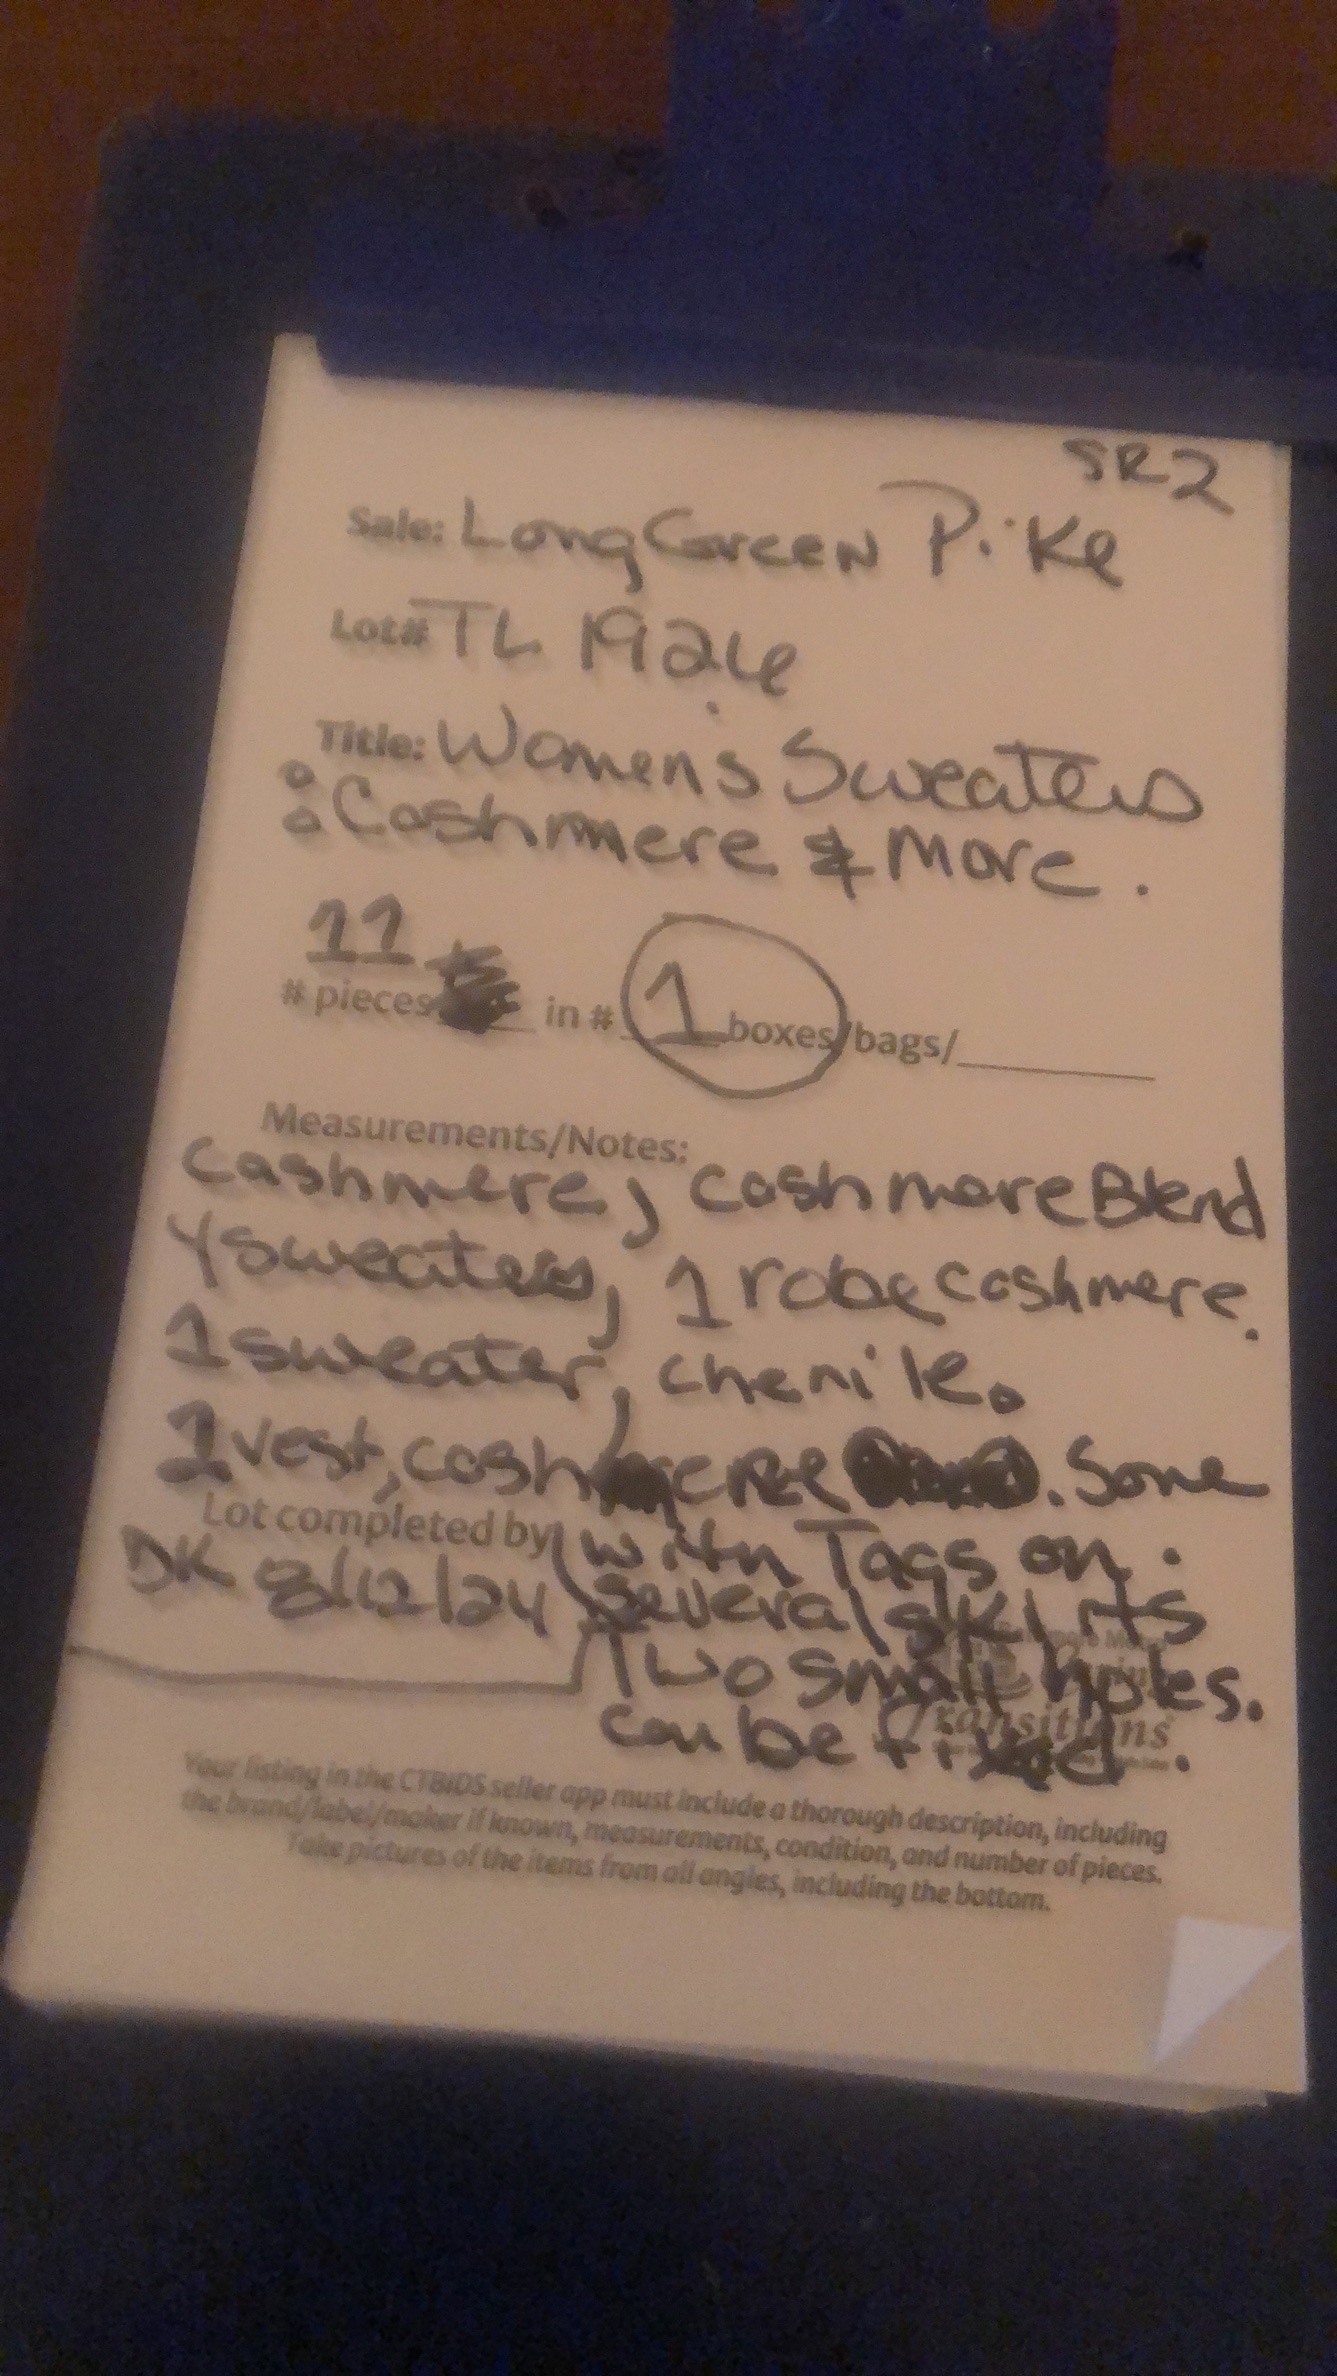 SR2
Sale: Long Green Pike
Lot# TL 1926
Title: Women's Sweaters
: Cashmere & More.
11
# pieces in # 1 boxes/bags/
Measurements/Notes:
Cashmere, cashmoreBlend
4 sweaters, 1 robe cashmere.
1 sweater, chenile.
1 vest, cashmere. Some
Lot completed by with Tags on.
DK 8/12/24 several skirts
Two small holes.
can be fixed.
Transitions
Your listing in the CTBIDS seller app must include a thorough description, including
the brand/label/maker if known, measurements, condition, and number of pieces.
Take pictures of the items from all angles, including the bottom.